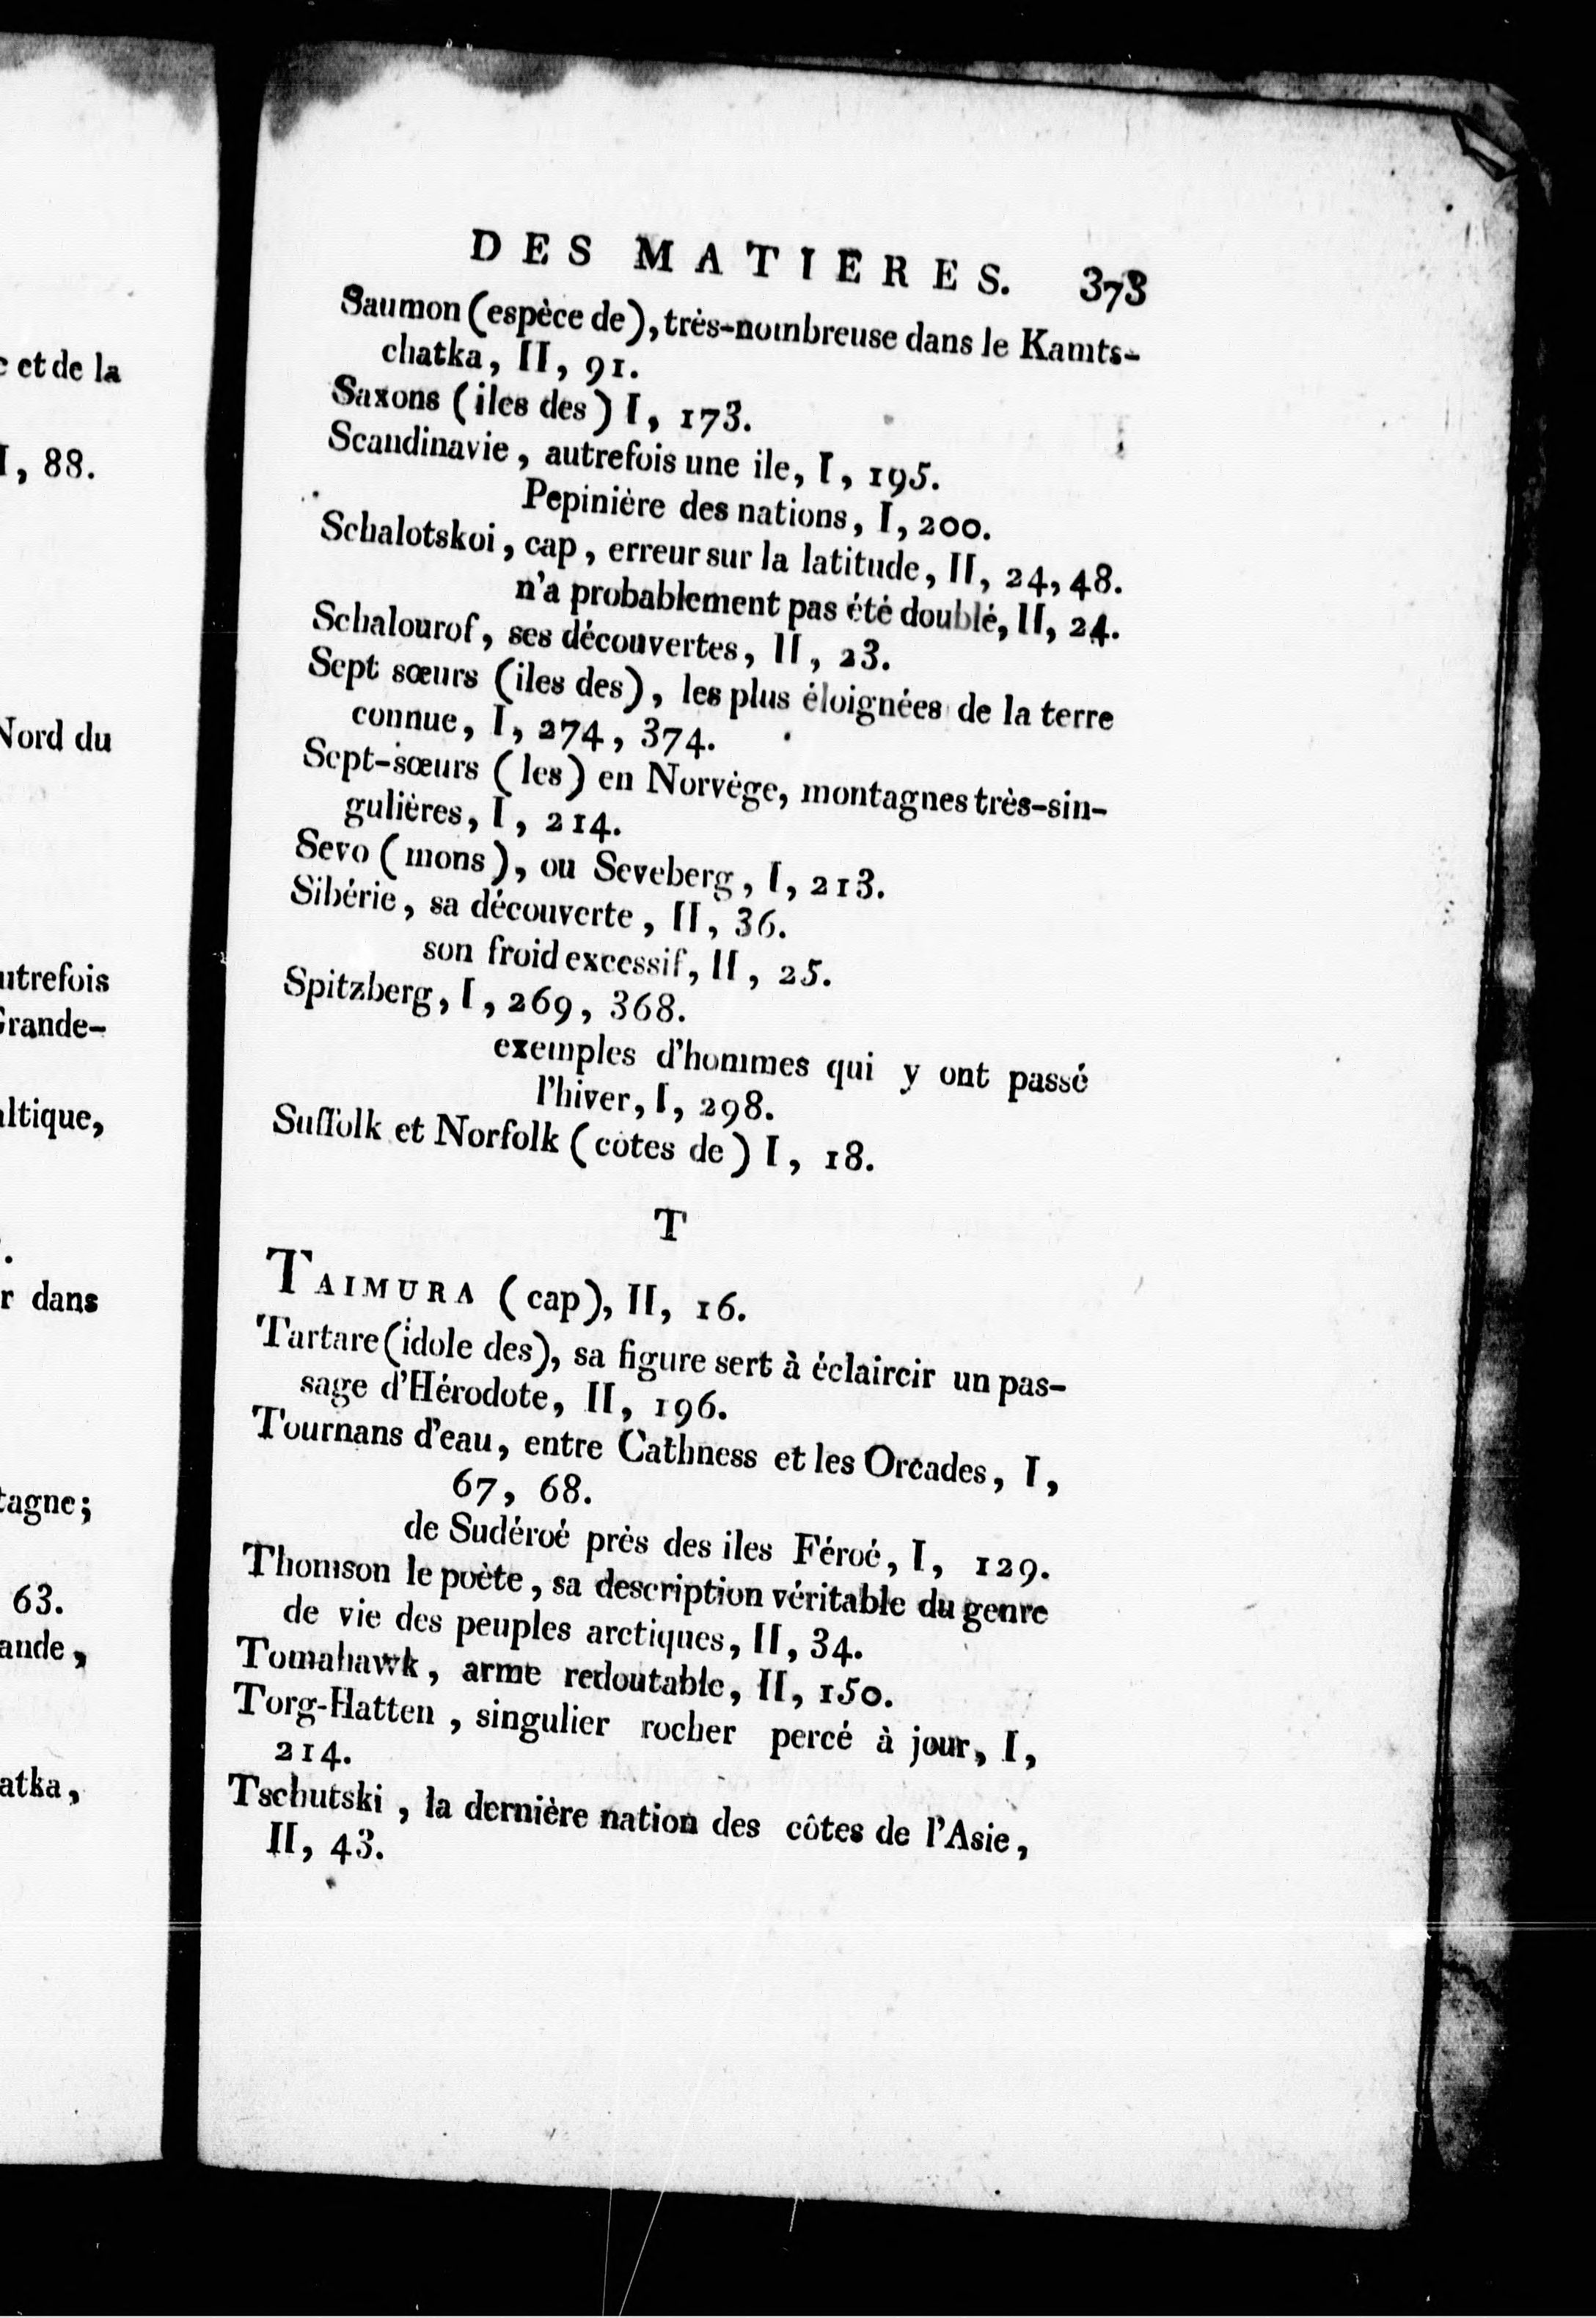 c et de la
I, 88.
Nord du
utrefois
Grande-
altique,
r dans
tagne;
63.
ande,
atka,
DES MATIERES. 373
Saumon (espèce de), très-nombreuse dans le Kamts-
chatka, II, 91.
Saxons (iles des) I, 173.
Scandinavie, autrefois une ile, I, 195.
Pepinière des nations, I, 200.
Schalotskoi, cap, erreur sur la latitude, II, 24, 48.
n'a probablement pas été doublé, II, 24.
Schalourof, ses découvertes, II, 23.
Sept sœurs (iles des), les plus éloignées de la terre
connue, I, 274, 374.
Sept-sœurs (les) en Norvège, montagnes très-sin-
gulières, I, 214.
Sevo (mons), ou Seveberg, I, 213.
Sibérie, sa découverte, II, 36.
son froid excessif, II, 25.
Spitzberg, I, 269, 368.
exemples d'hommes qui y ont passé
l'hiver, I, 298.
Suffolk et Norfolk (côtes de) I, 18.
T
TAIMURA (cap), II, 16.
Tartare (idole des), sa figure sert à éclaircir un pas-
sage d'Hérodote, II, 196.
Tournans d'eau, entre Cathness et les Orcades, I,
67, 68.
de Sudéroé près des iles Féroé, I, 129.
Thomson le poète, sa description véritable du genre
de vie des peuples arctiques, II, 34.
Tomahawk, arme redoutable, II, 150.
Torg-Hatten, singulier rocher percé à jour, I,
214.
Tschutski, la dernière nation des côtes de l'Asie,
II, 43.